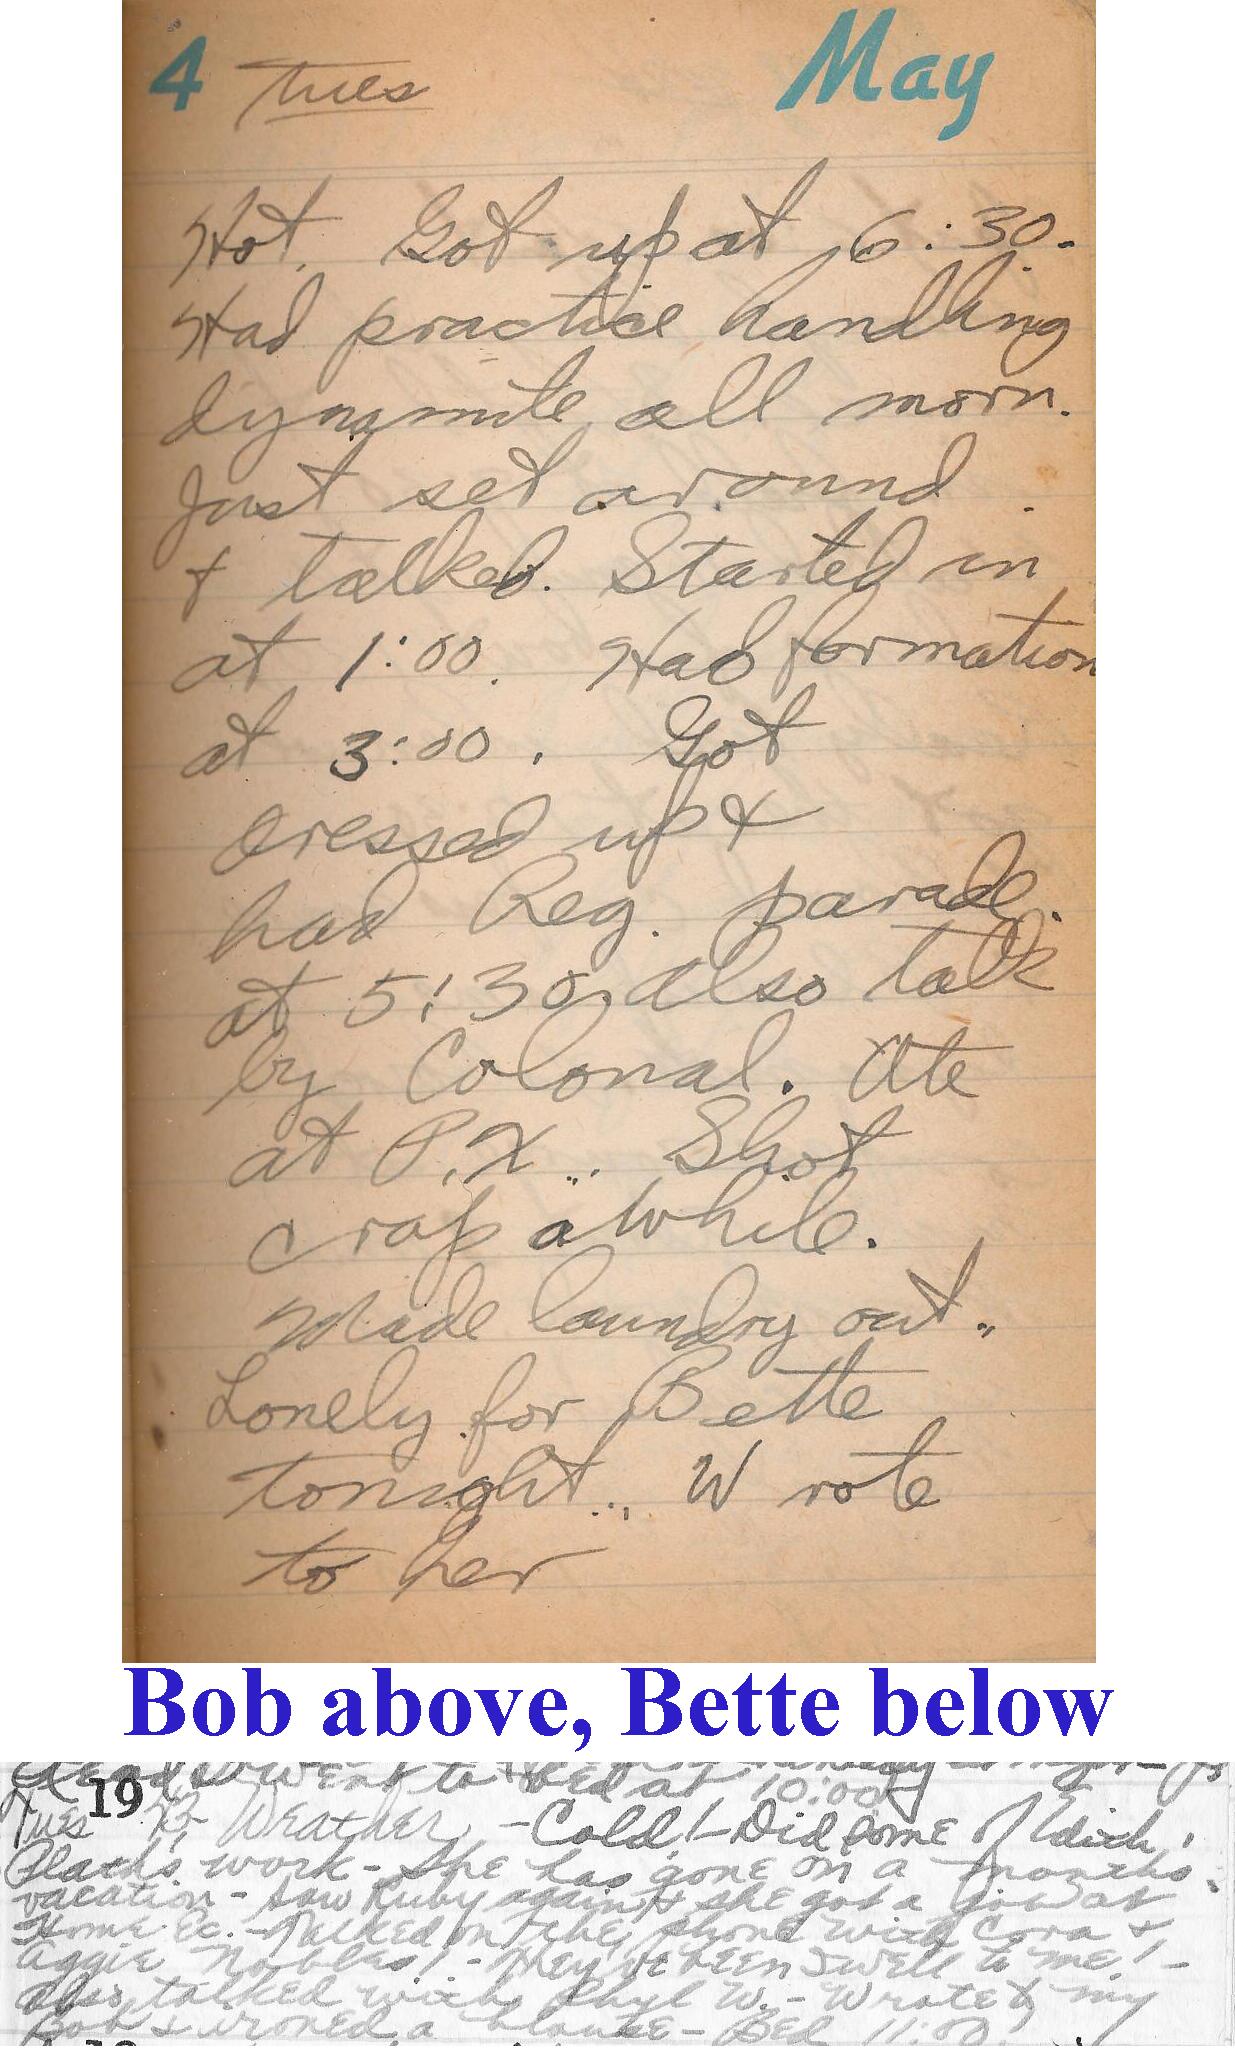 4 Tues May
Hot. Got up at 6:30.
Had practice handling
dynamite all morn.
Just set around
& talked. Started in
at 1:00. Had formation
at 3:00. Got
dressed up &
had Reg. parade
at 5:30. Also talk
by Colonal. Ate
at P.X.. Shot
crap a while.
Made laundry out..
Lonely for Bette
tonight.. Wrote
to her
Bob above, Bette below
went to bed at 10:00
19
Tues Weather - Cold! - Did some of
work - She has gone on a months
vacation - saw Ruby again & she got a job at
Home Ec. - Talked on the phone with Cora &
Aggie Nobles! - They've been swell to me! -
Also talked with Phyl W. - Wrote to my
Bob & ironed a blouse - Bed 11:00